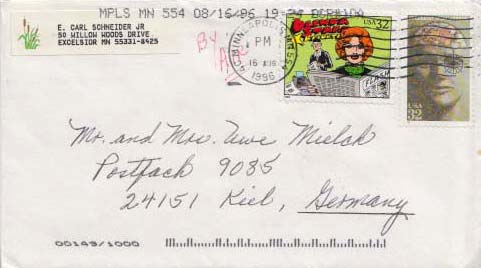 MPLS MN 554 08/16/96
E. CARL SCHNEIDER JR
50 WILLOW WOODS DRIVE
EXCELSIOR MN 55331-8425
By
Air
PM
16 AUG
1996
BRENDA
STARR
USA 32
USA
32
Mr. and Mrs. Uwe Mielch
Postfach 9085
24151 Kiel, Germany
00149/1000